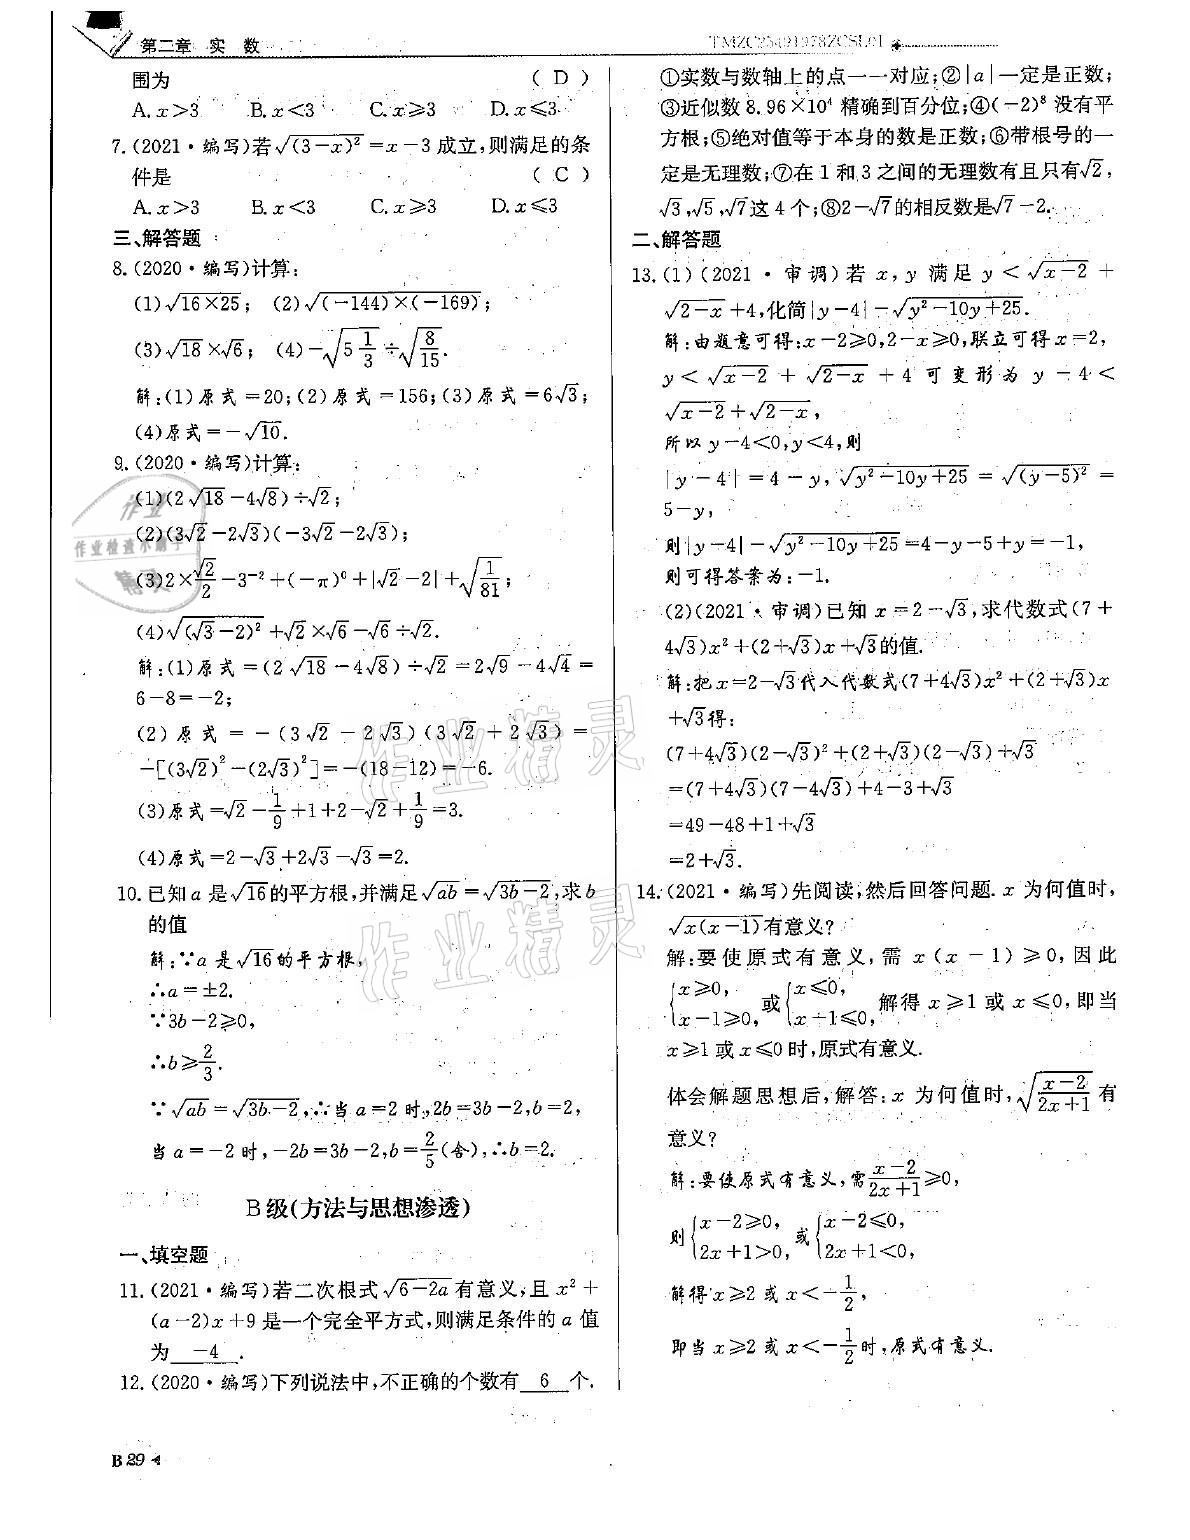 第二章 实 数
TMZC25491978ZCSL01
围为 ( D )
A. x>3 B. x<3 C. x⩾3 D. x⩽3
7. (2021·编写)若√(3-x)² =x-3成立,则满足的条
件是 ( C )
A. x>3 B. x<3 C. x⩾3 D. x⩽3
三、解答题
8. (2020·编写)计算:
(1)√16×25; (2)√(-144)×(-169);
(3)√18×√6; (4)-√5 1/3 ÷√8/15.
解:(1)原式=20;(2)原式=156;(3)原式=6√3;
(4)原式=-√10.
9. (2020·编写)计算:
(1)(2√18-4√8)÷√2;
(2)(3√2-2√3)(-3√2-2√3);
(3)2×√2/2-3⁻²+(-π)⁰+|√2-2|+√1/81;
(4)√(√3-2)²+√2×√6-√6÷√2.
解:(1)原式=(2√18-4√8)÷√2=2√9-4√4=
6-8=-2;
(2)原式=-(3√2-2√3)(3√2+2√3)=
-[(3√2)²-(2√3)²]=-(18-12)=-6.
(3)原式=√2-1/9+1+2-√2+1/9=3.
(4)原式=2-√3+2√3-√3=2.
10. 已知a是√16的平方根,并满足√ab=√3b-2,求b
的值
解:∵a是√16的平方根,
∴a=±2.
∵3b-2⩾0,
∴b⩾2/3.
∵√ab=√3b-2,∴当a=2时,2b=3b-2,b=2,
当a=-2时,-2b=3b-2,b=2/5(舍),∴b=2.
B级(方法与思想渗透)
一、填空题
11. (2021·编写)若二次根式√6-2a有意义,且x²+
(a-2)x+9是一个完全平方式,则满足条件的a值
为 -4 .
12. (2020·编写)下列说法中,不正确的个数有 6 个.
B 29
①实数与数轴上的点一一对应;②|a|一定是正数;
③近似数8.96×10⁴精确到百分位;④(-2)⁸没有平
方根;⑤绝对值等于本身的数是正数;⑥带根号的一
定是无理数;⑦在1和3之间的无理数有且只有√2,
√3,√5,√7这4个;⑧2-√7的相反数是√7-2.
二、解答题
13. (1)(2021·审调)若x,y满足y<√x-2+
√2-x+4,化简|y-4|-√y²-10y+25.
解:由题意可得:x-2⩾0,2-x⩾0,联立可得x=2,
y<√x-2+√2-x+4可变形为y-4<
√x-2+√2-x,
所以y-4<0,y<4,则
|y-4|=4-y,√y²-10y+25=√(y-5)²=
5-y,
则|y-4|-√y²-10y+25=4-y-5+y=-1,
则可得答案为:-1.
(2)(2021·审调)已知x=2-√3,求代数式(7+
4√3)x²+(2+√3)x+√3的值.
解:把x=2-√3代入代数式(7+4√3)x²+(2+√3)x
+√3得:
(7+4√3)(2-√3)²+(2+√3)(2-√3)+√3
=(7+4√3)(7-4√3)+4-3+√3
=49-48+1+√3
=2+√3.
14. (2021·编写)先阅读,然后回答问题. x为何值时,
√x(x-1)有意义?
解:要使原式有意义,需x(x-1)⩾0,因此
{x⩾0, x-1⩾0, 或{x⩽0, x-1⩽0, 解得x⩾1或x⩽0,即当
x⩾1或x⩽0时,原式有意义.
体会解题思想后,解答:x为何值时,√(x-2)/(2x+1)有
意义?
解:要使原式有意义,需(x-2)/(2x+1)⩾0,
则{x-2⩾0, 2x+1>0, 或{x-2⩽0, 2x+1<0,
解得x⩾2或x<-1/2,
即当x⩾2或x<-1/2时,原式有意义.
作业
作业检查小助手
精灵
作业精灵
作业精灵